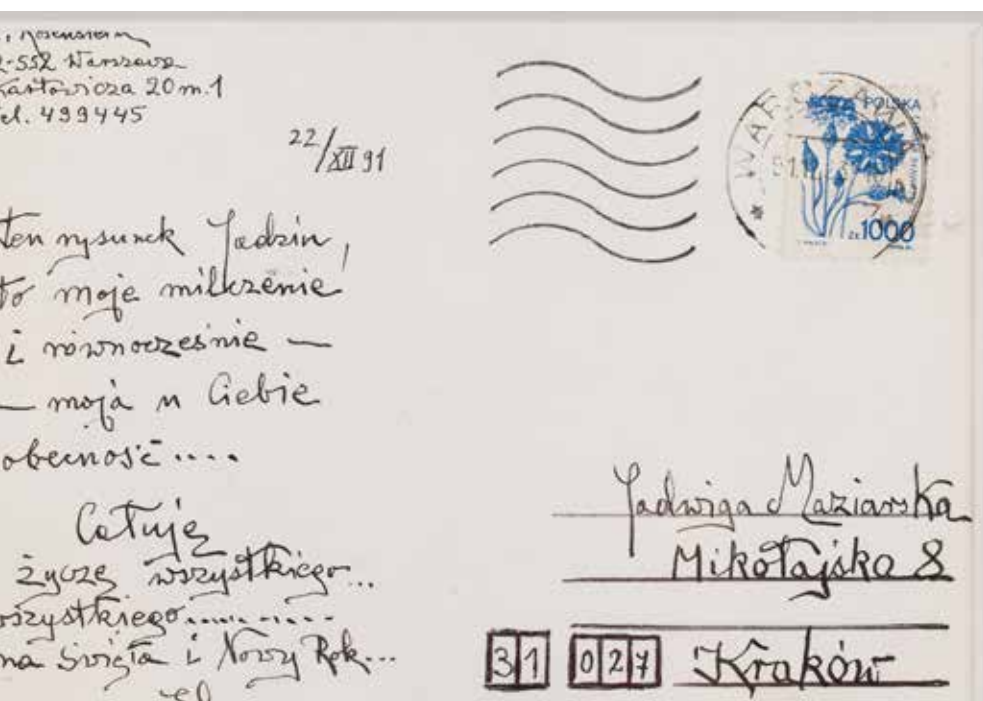 2-552 Warszawa
tel. 499445
22/XII 91
ten rysunek Jadziu,
to moje milczenie
i równocześnie —
— moja u Ciebie
obecność....
Całuję
życzę wszystkiego...
wszystkiego..........
na Święta i Nowy Rok...
WARSZAWA
POLSKA
zł 1000
Jadwiga Maziarska
Mikołajska 8
31 027 Kraków